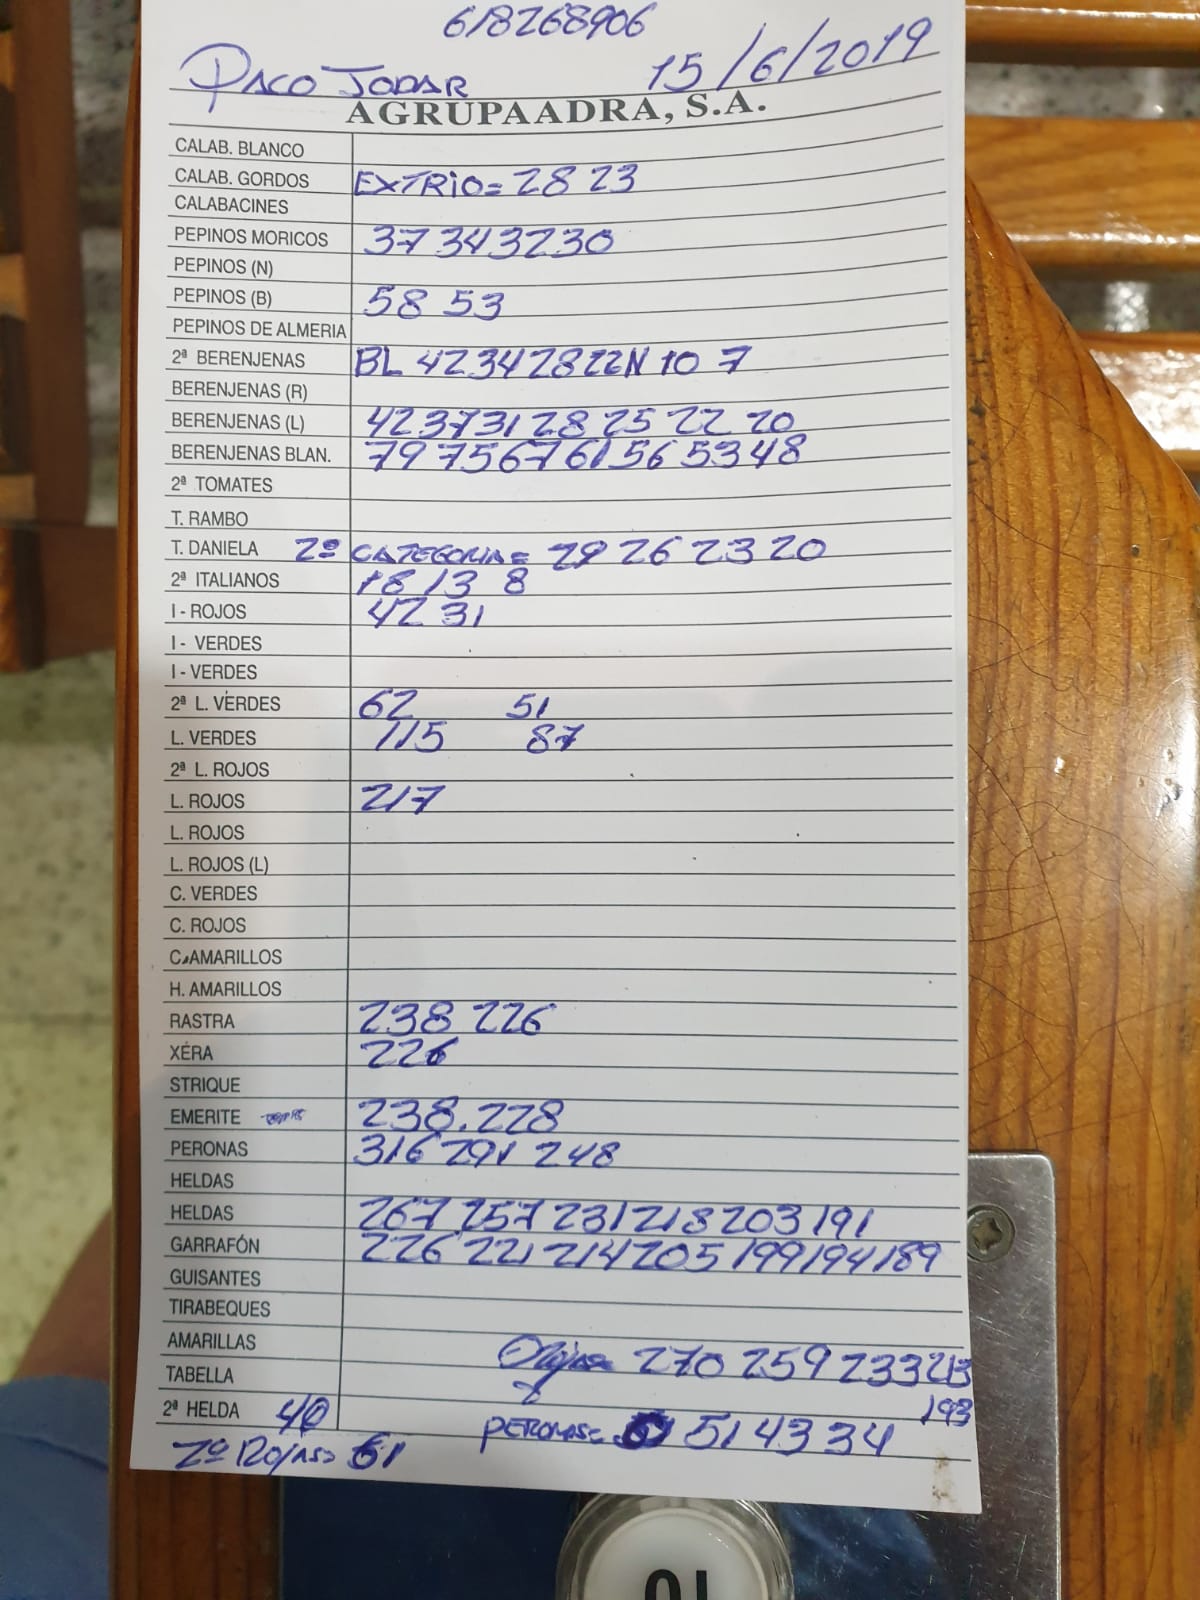 618268906
PACO JODAR 15/6/2019
AGRUPAADRA, S.A.
CALAB. BLANCO
CALAB. GORDOS EXTRIO= 28 23
CALABACINES
PEPINOS MORICOS 37 34 32 30
PEPINOS (N)
PEPINOS (B) 58 53
PEPINOS DE ALMERIA
2ª BERENJENAS BL 42 34 28 22 N 10 7
BERENJENAS (R)
BERENJENAS (L) 42 37 31 28 25 22 20
BERENJENAS BLAN. 79 75 67 61 56 53 48
2ª TOMATES
T. RAMBO
T. DANIELA 2º CATEGORIA= 29 26 23 20
2ª ITALIANOS 18 13 8
I - ROJOS 42 31
I - VERDES
I - VERDES
2ª L. VERDES 62 51
L. VERDES 115 87
2ª L. ROJOS
L. ROJOS 217
L. ROJOS
L. ROJOS (L)
C. VERDES
C. ROJOS
C. AMARILLOS
H. AMARILLOS
RASTRA 238 226
XÉRA 226
STRIQUE
EMERITE 238. 228
PERONAS 316 291 248
HELDAS
HELDAS 267 257 231 218 203 191
GARRAFÓN 226 221 214 205 199 194 189
GUISANTES
TIRABEQUES
AMARILLAS 270 259 233 213
TABELLA 193
2ª HELDA 40 PERONAS= 51 43 34
2º ROJAS= 61